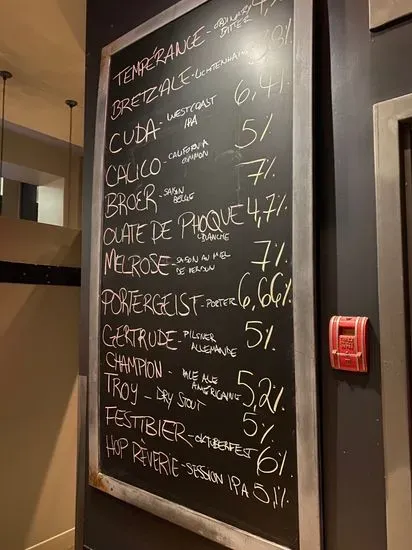 TEMPÉRANCE - ORDINARY BITTER
BRETZALE - LICHTENHAINER
CUDA - WESTCOAST IPA 6,4%
CALICO - CALIFORNIA COMMON 5%
BROËR - SAISON BELGE 7%
OUATE DE PHOQUE BLANCHE 4,7%
MELROSE - SAISON AU MIEL DE VERDUN 7%
PORTERGEIST - PORTER 6,66%
GERTRUDE - PILSNER ALLEMANDE 5%
CHAMPION - PALE ALE AMÉRICAINE 5,2%
TROY - DRY STOUT 5%
FESTBIER - OKTOBERFEST 6%
HOP RÊVERIE - SESSION IPA 5,1%